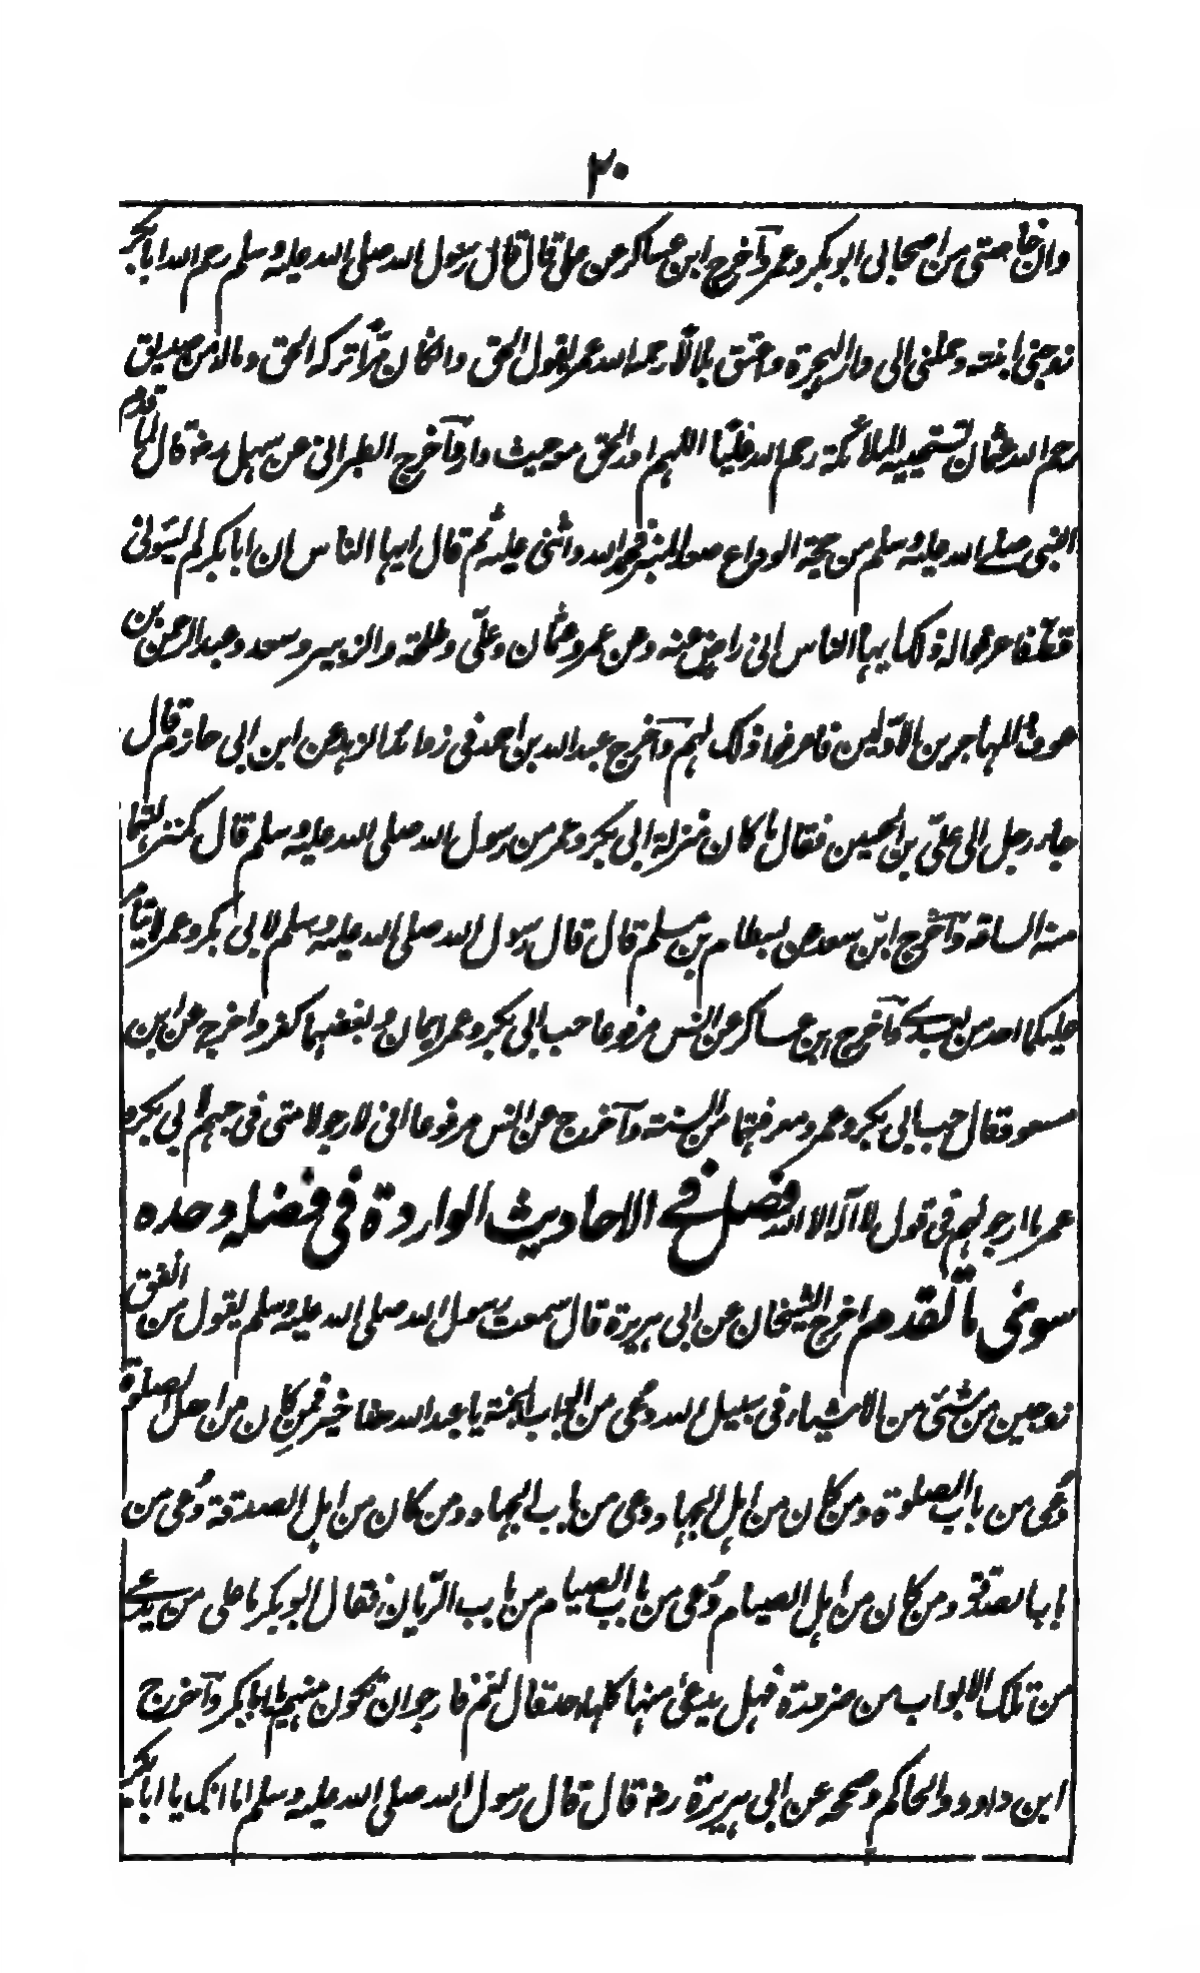 ٣٠
وان خاصتى من اصحابى ابو بكر وعمر وآخرج ابن عساكر عن على قال قال رسول الله صلى الله عليه وسلم رحم الله ابا بكر
زوجنى ابنته وحملنى الى دار الهجرة واعتق بلالاً رحم الله عمر يقول الحق وان كان مرّاً تركه الحق وماله من صديق
رحم الله عثمان تستحييه الملائكة رحم الله عليّا اللهم ادر الحق معه حيث دار وآخرج الطبرانى عن سهل رض قال لما قدم
النبى صلے الله عليه وسلم من حجة الوداع صعد المنبر فحمد الله واثنى عليه ثم قال ايها الناس ان ابا بكر لم يسؤنى
قط فاعرفوا له ذلك ايها الناس انى راض عنه وعن عمر وعثمان وعلّى وطلحة والزبير وسعد وعبد الرحمن بن
عوف والمهاجرين الاوّلين فاعرفوا ذلك لهم وآخرج عبد الله بن احمد فى زوائد الزهد عن ابن ابى حازم قال
جاء رجل الى علىّ بن الحسين فقال ما كان منزلة ابى بكر وعمر من رسول الله صلى الله عليه وسلم قال كمنزلتهما
منه الساعة وآخرج ابن سعد عن بسطام بن مسلم قال قال رسول الله صلى الله عليه وسلم لابى بكر وعمر لا يتأمر
عليكما احد من بعدے وآخرج ابن عساكر عن انس مرفوعا حب ابى بكر وعمر ايمان وبغضهما كفر واخرج عن ابن
مسعود قال حب ابى بكر وعمر ومعرفتهما من السنة وآخرج عن انس مرفوعا انى لارجو لامتى فى حبهم لابى بكر و
عمر ما ارجو لهم فى قول لا اله الا الله فصل فے الاحاديث الواردة فى فضله وحده
سوى ما تقدم اخرج الشيخان عن ابى هريرة قال سمعت رسول الله صلى الله عليه وسلم يقول من انفق
زوجين من شئ من الاشياء فى سبيل الله دعى من ابواب الجنة يا عبد الله هذا خير فمن كان من اهل الصلوة
دُعى من باب الصلوة ومن كان من اهل الجهاد دعى من باب الجهاد ومن كان من اهل الصدقة دُعى من
باب الصدقة ومن كان من اهل الصيام دُعى من باب الصيام من باب الريان فقال ابو بكر ما على من يدعے
من تلك الابواب من ضرورة فهل يدعى منها كلها احد قال نعم فارجو ان تكون منهم يا ابا بكر وآخرج
ابن داوود والحاكم وصححه عن ابى هريرة رض قال قال رسول الله صلى الله عليه وسلم اما انك يا ابا بكر